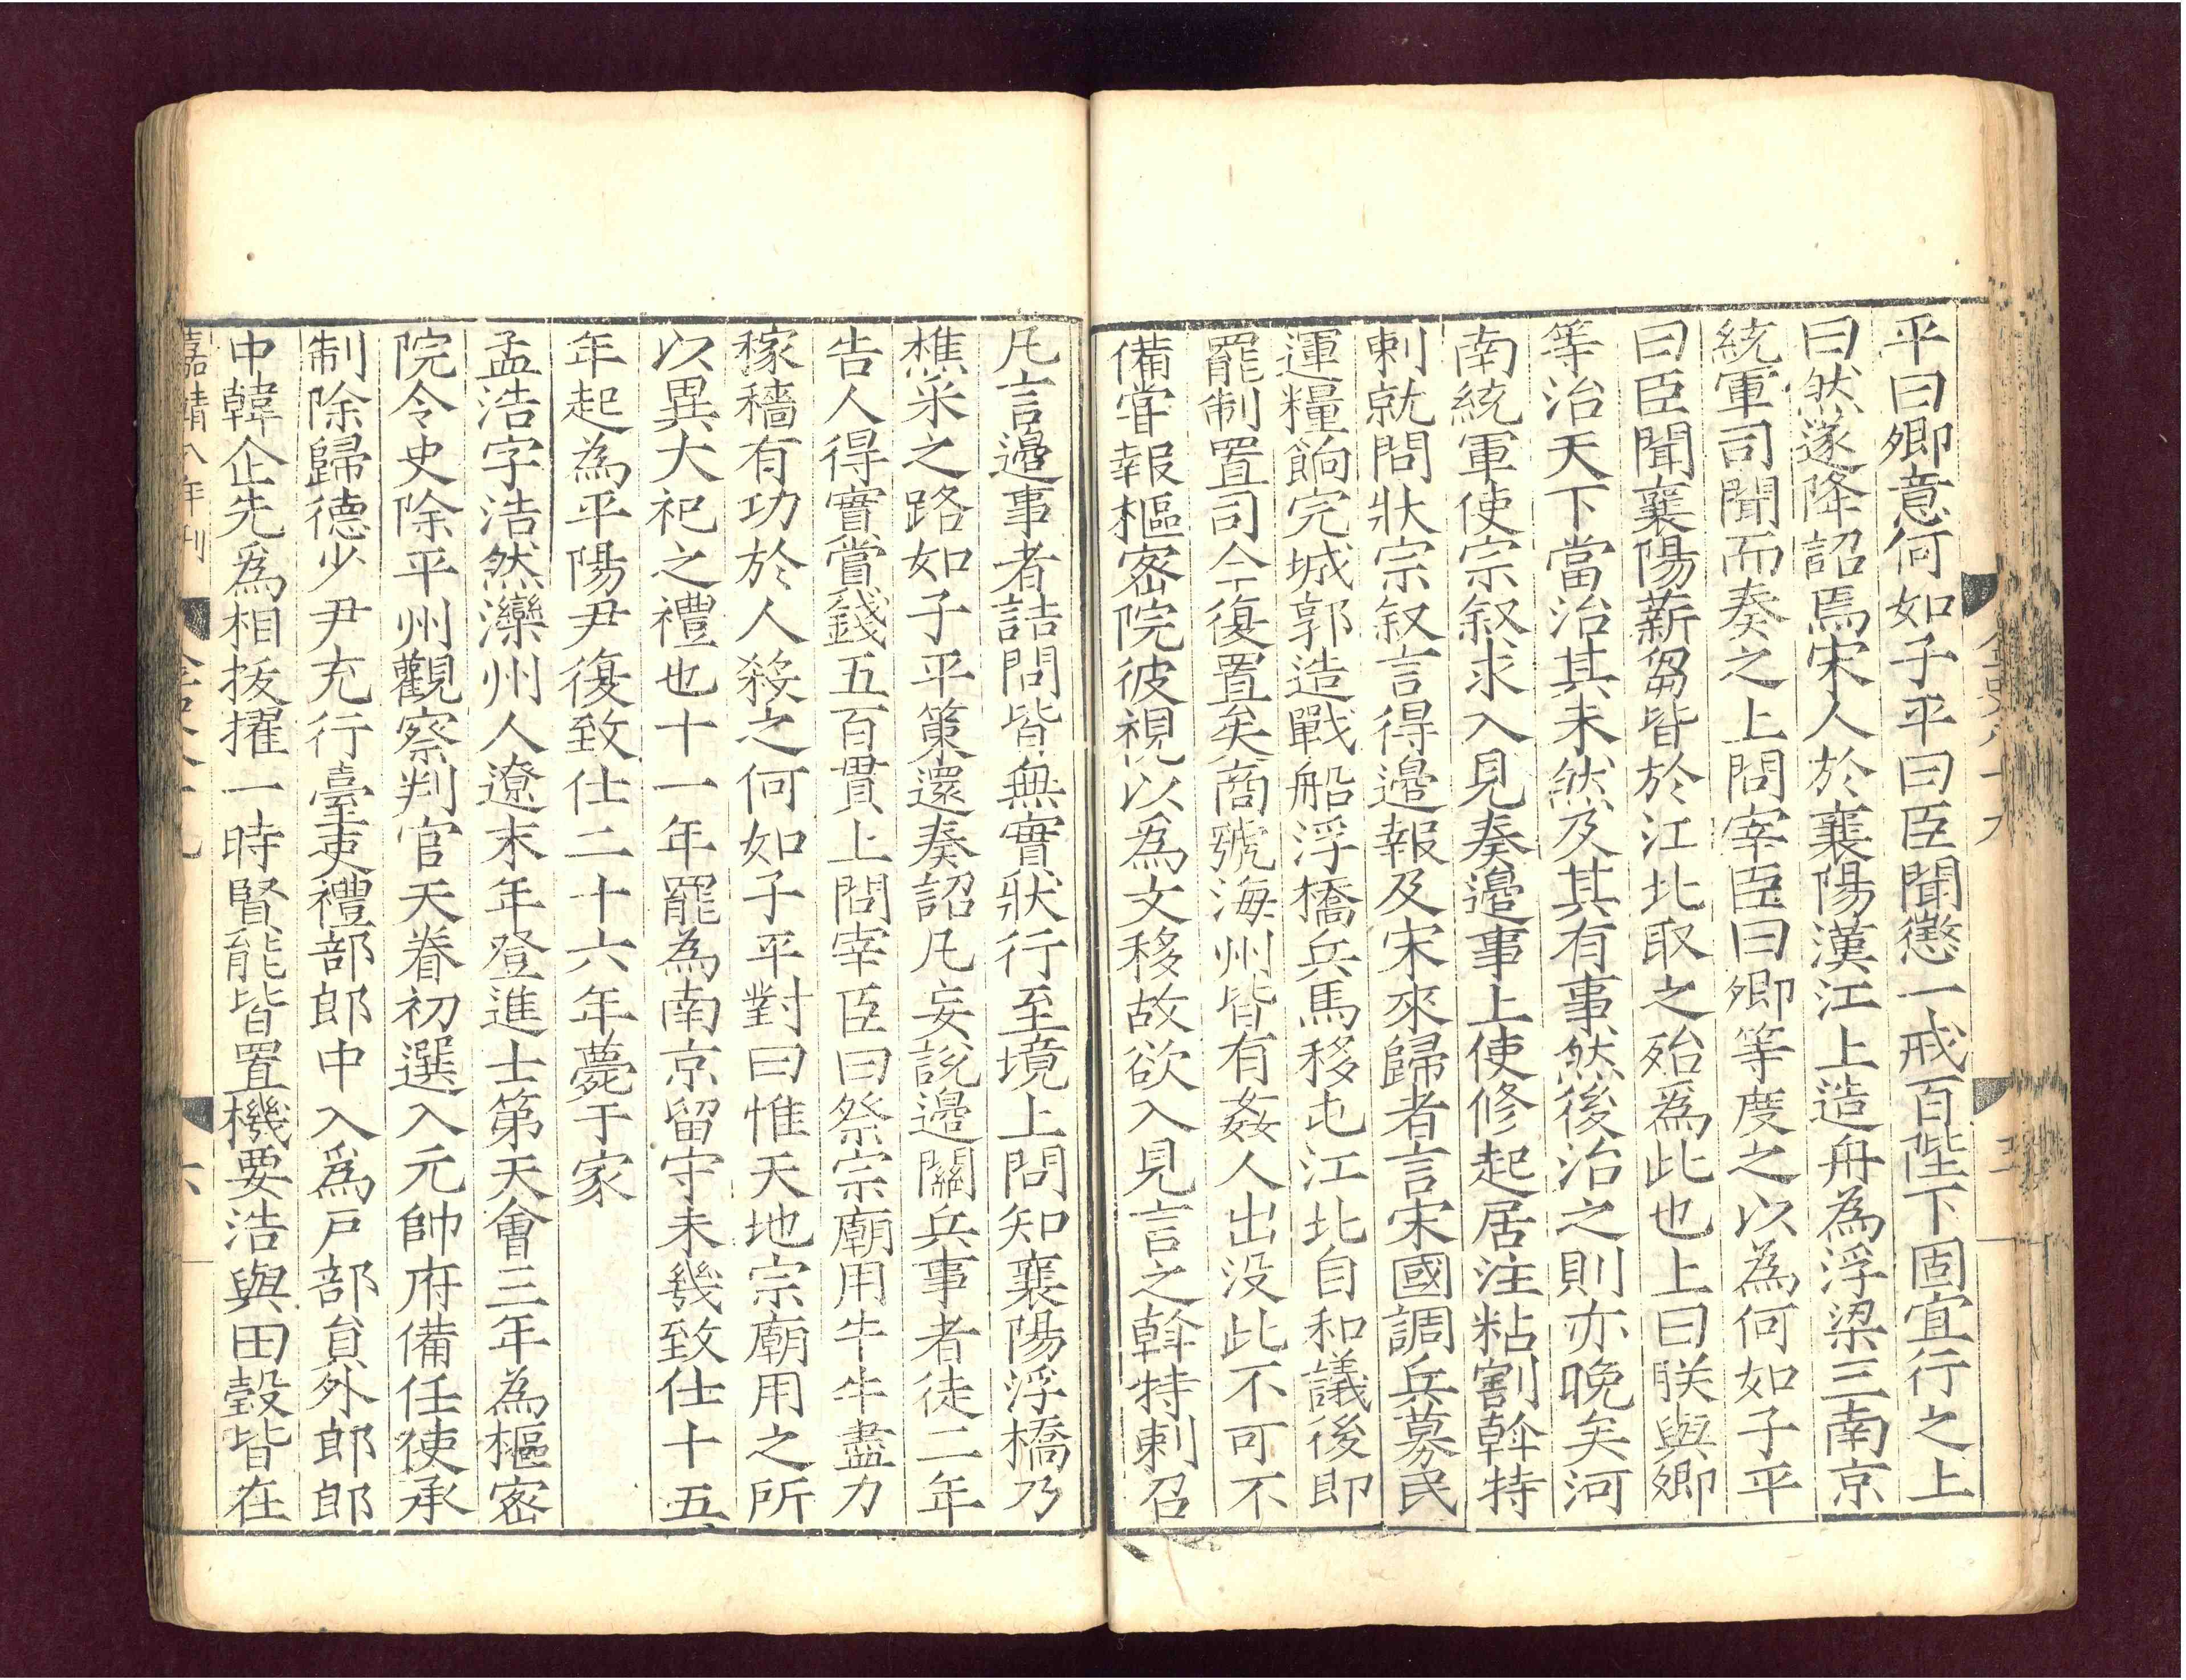 平曰卿意何如子平曰臣聞懲一戒百陛下固宜行之上
曰然遂降詔焉宋人於襄陽漢江上造舟為浮梁三南京
統軍司聞而奏之上問宰臣曰卿等度之以為何如子平
曰臣聞襄陽薪芻皆於江北取之殆為此也上曰朕與卿
等治天下當治其未然及其有事然後治之則亦晚矣河
南統軍使宗叙求入見奏邊事上使修起居注粘割斡特
剌就問狀宗叙言得邊報及宋來歸者言宋國調兵募民
運糧餉完城郭造戰船浮橋兵馬移屯江北自和議後即
罷制置司今復置矣商虢海州皆有姦人出没此不可不
備嘗報樞密院彼視以為文移故欲入見言之斡特剌召
凡言邊事者詰問皆無實狀行至境上問知襄陽浮橋乃
樵采之路如子平策還奏詔凡妄説邊關兵事者徒二年
告人得實賞錢五百貫上問宰臣曰祭宗廟用牛牛盡力
稼穡有功於人殺之何如子平對曰惟天地宗廟用之所
以異大祀之禮也十一年罷為南京留守未幾致仕十五
年起為平陽尹復致仕二十六年薨于家
孟浩字浩然灤州人遼末年登進士第天會三年為樞密
院令史除平州觀察判官天眷初選入元帥府備任使承
制除歸德少尹充行臺吏禮部郎中入為戸部員外郎郎
中韓企先為相拔擢一時賢能皆置機要浩與田瑴皆在
嘉靖八年刊
六